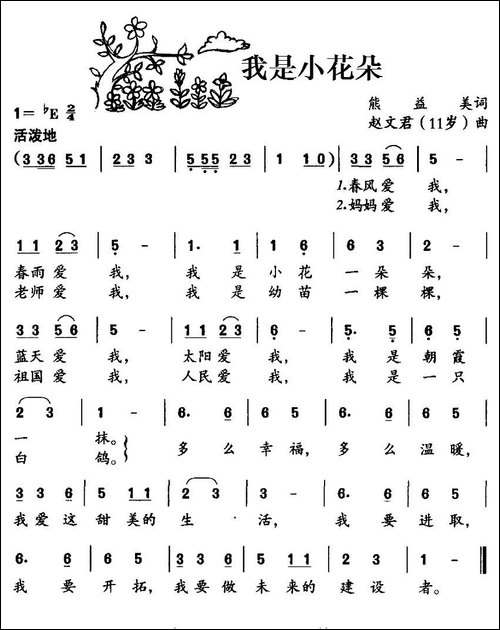 我是小花朵
熊益美词
1=♭E 2/4
赵文君(11岁)曲
活泼地
(3 36 5 1 | 2 3 3 | 5 55 2 3 | 1 1 0) | 3 3 5 6 | 1 - |
1.春风爱我,
2.妈妈爱我,
1 1 2 3 | 5 - | 1· 1 | 1 6 | 6 3 | 2 - |
春雨爱我,我是小花一朵朵,
老师爱我,我是幼苗一棵棵,
3 3 5 6 | 5 - | 1 1 2 3 | 6 - | 5· 5 | 6 5 |
蓝天爱我,太阳爱我,我是朝霞
祖国爱我,人民爱我,我是一只
2 3 | 1 - | 6· 6 | 3 6 | 6· 6 | 3 6 |
一抹。
白鸽。
多么幸福,多么温暖,
3 3 6 | 5 1 1 | 2 3 | 3 - | 6· 6 | 2 6 |
我爱这甜美的生活,我要进取,
6· 6 | 5· 5 | 3 3 6 | 5 1 1 | 2 3 | 1 - ‖
我要开拓,我要做未来的建设者。